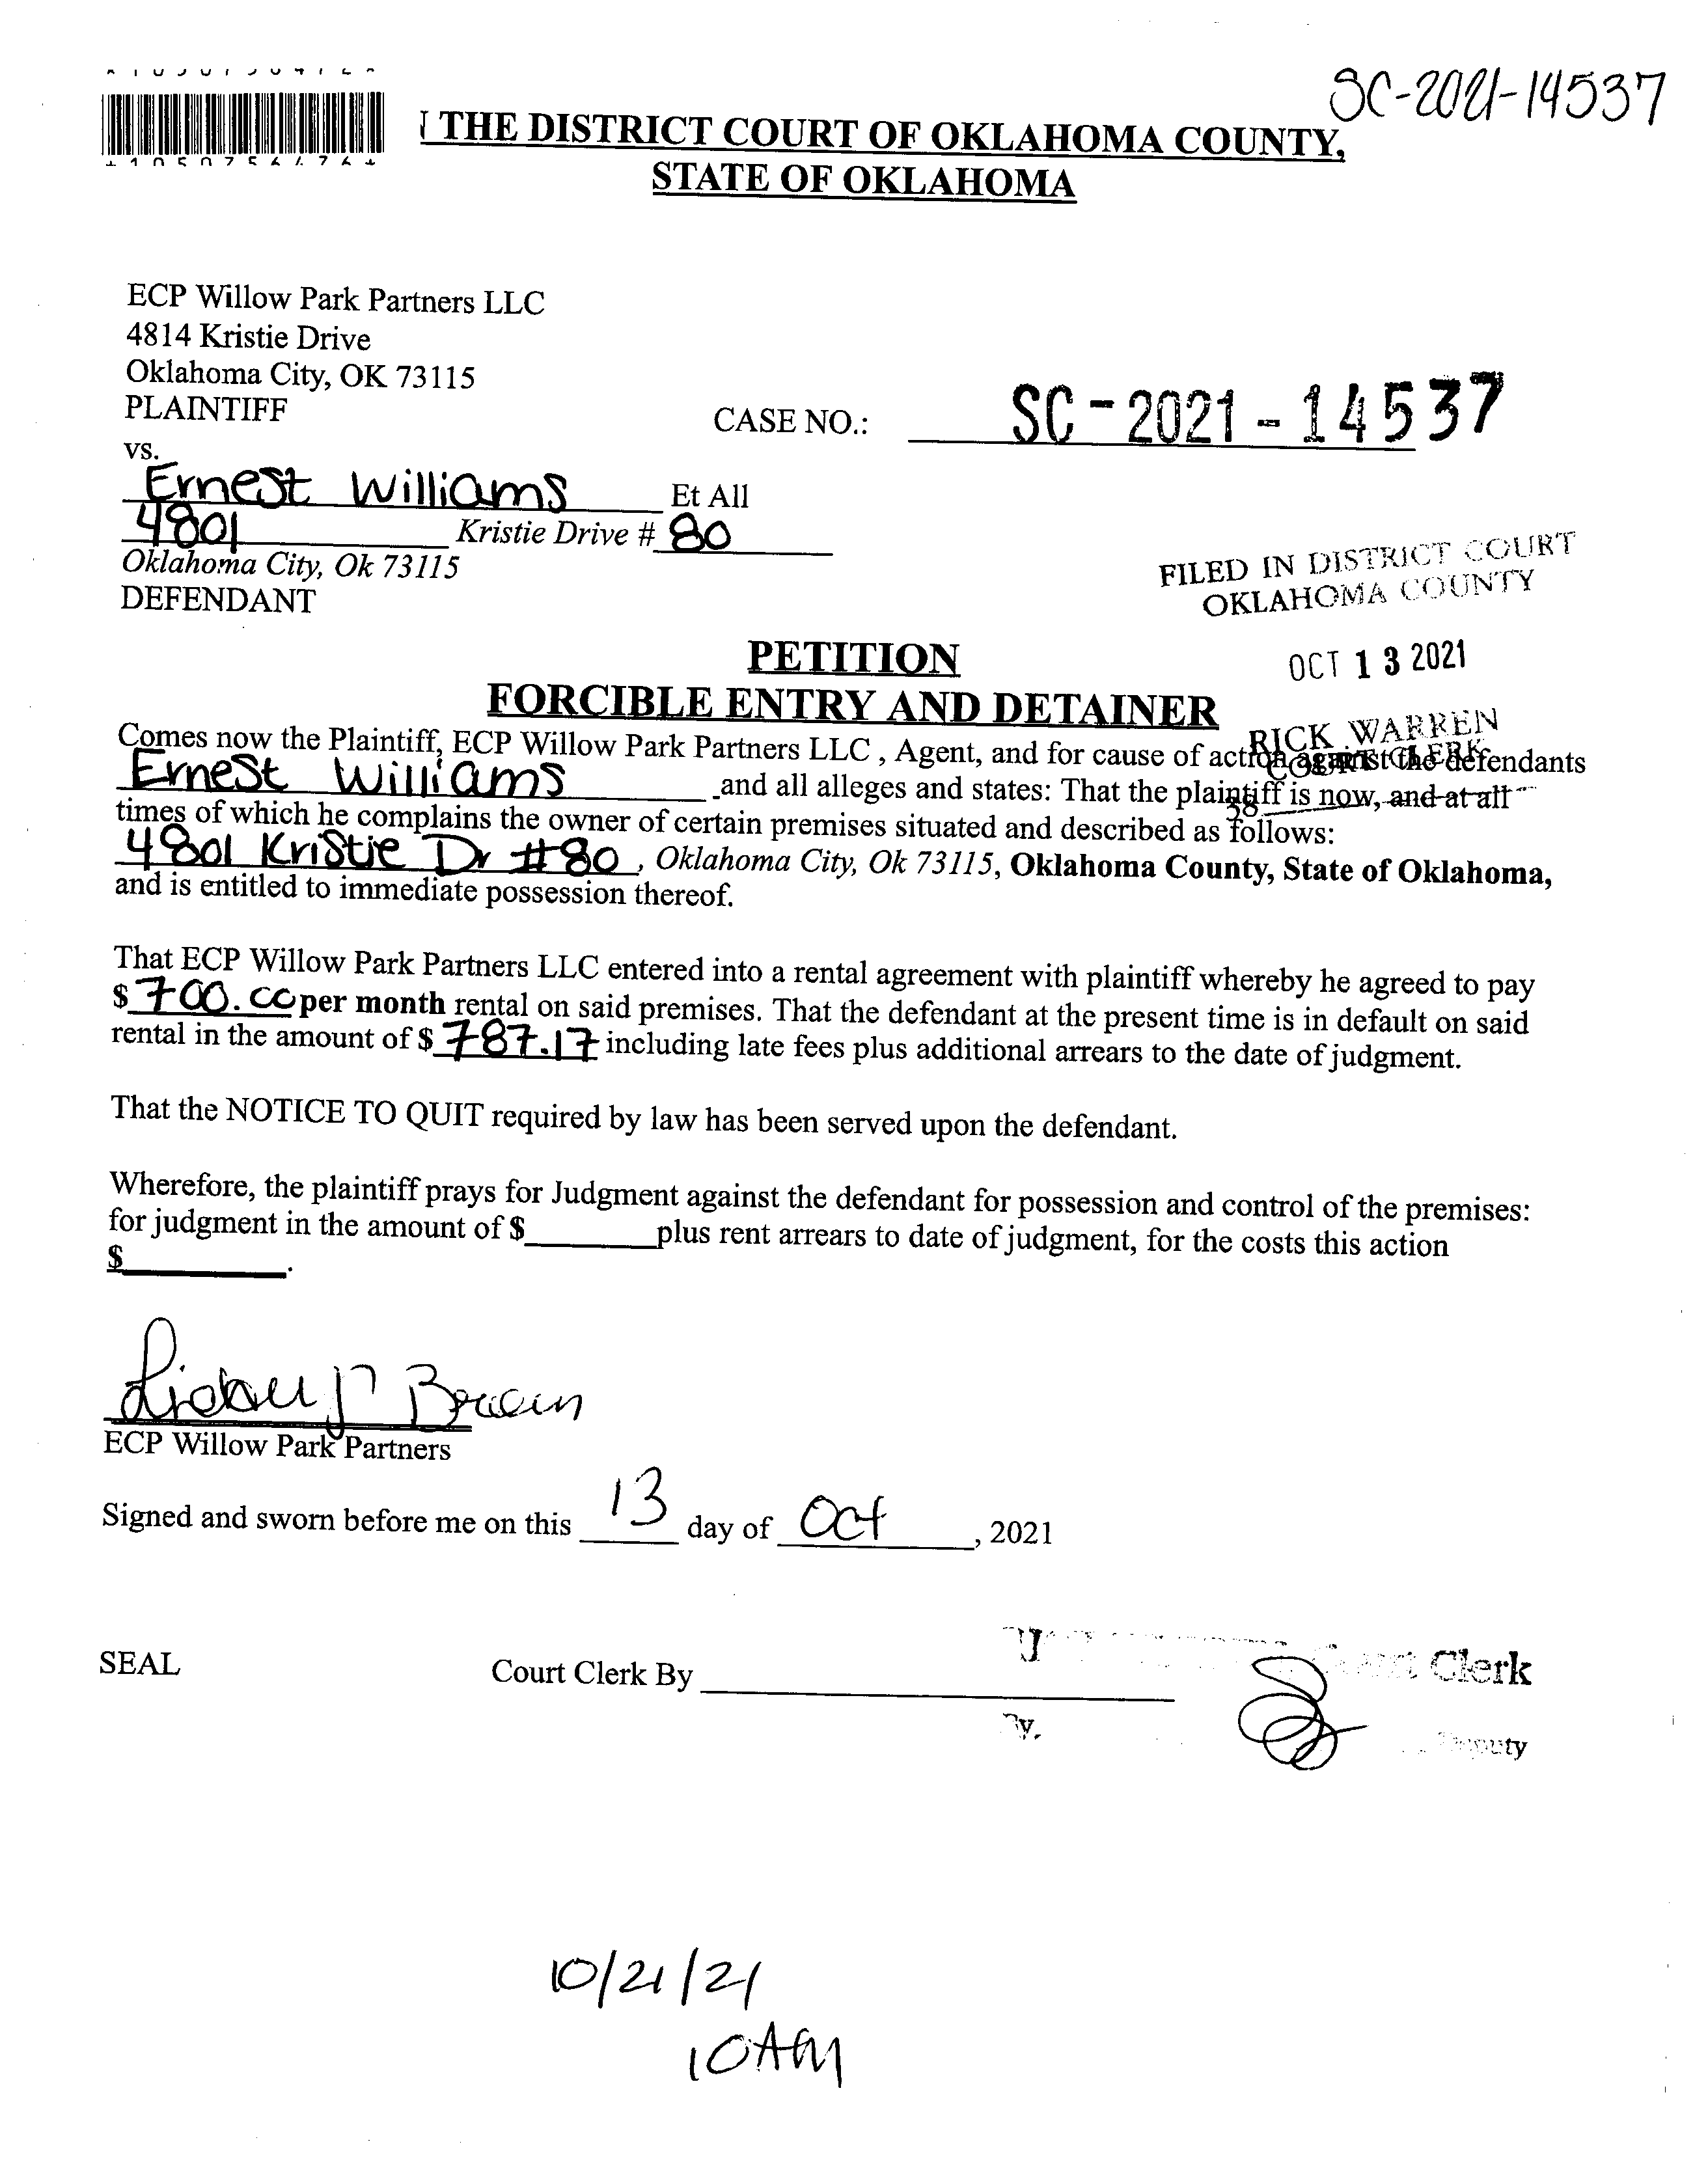 SC-2021-14537
THE DISTRICT COURT OF OKLAHOMA COUNTY,
STATE OF OKLAHOMA
ECP Willow Park Partners LLC
4814 Kristie Drive
Oklahoma City, OK 73115
PLAINTIFF
CASE NO.: SC-2021-14537
vs.
Ernest Williams Et All
4801 Kristie Drive # 80
Oklahoma City, Ok 73115
DEFENDANT
FILED IN DISTRICT COURT
OKLAHOMA COUNTY
OCT 13 2021
RICK WARREN
COURT CLERK
38
PETITION
FORCIBLE ENTRY AND DETAINER
Comes now the Plaintiff, ECP Willow Park Partners LLC , Agent, and for cause of action against the defendants
Ernest Williams and all alleges and states: That the plaintiff is now, and at all
times of which he complains the owner of certain premises situated and described as follows:
4801 Kristie Dr #80, Oklahoma City, Ok 73115, Oklahoma County, State of Oklahoma,
and is entitled to immediate possession thereof.
That ECP Willow Park Partners LLC entered into a rental agreement with plaintiff whereby he agreed to pay
$ 700.00 per month rental on said premises. That the defendant at the present time is in default on said
rental in the amount of $ 787.17 including late fees plus additional arrears to the date of judgment.
That the NOTICE TO QUIT required by law has been served upon the defendant.
Wherefore, the plaintiff prays for Judgment against the defendant for possession and control of the premises:
for judgment in the amount of $________plus rent arrears to date of judgment, for the costs this action
$__________.
ECP Willow Park Partners
Signed and sworn before me on this 13 day of Oct, 2021
SEAL
Court Clerk By
Court Clerk
By.
Deputy
10/21/21
10AM